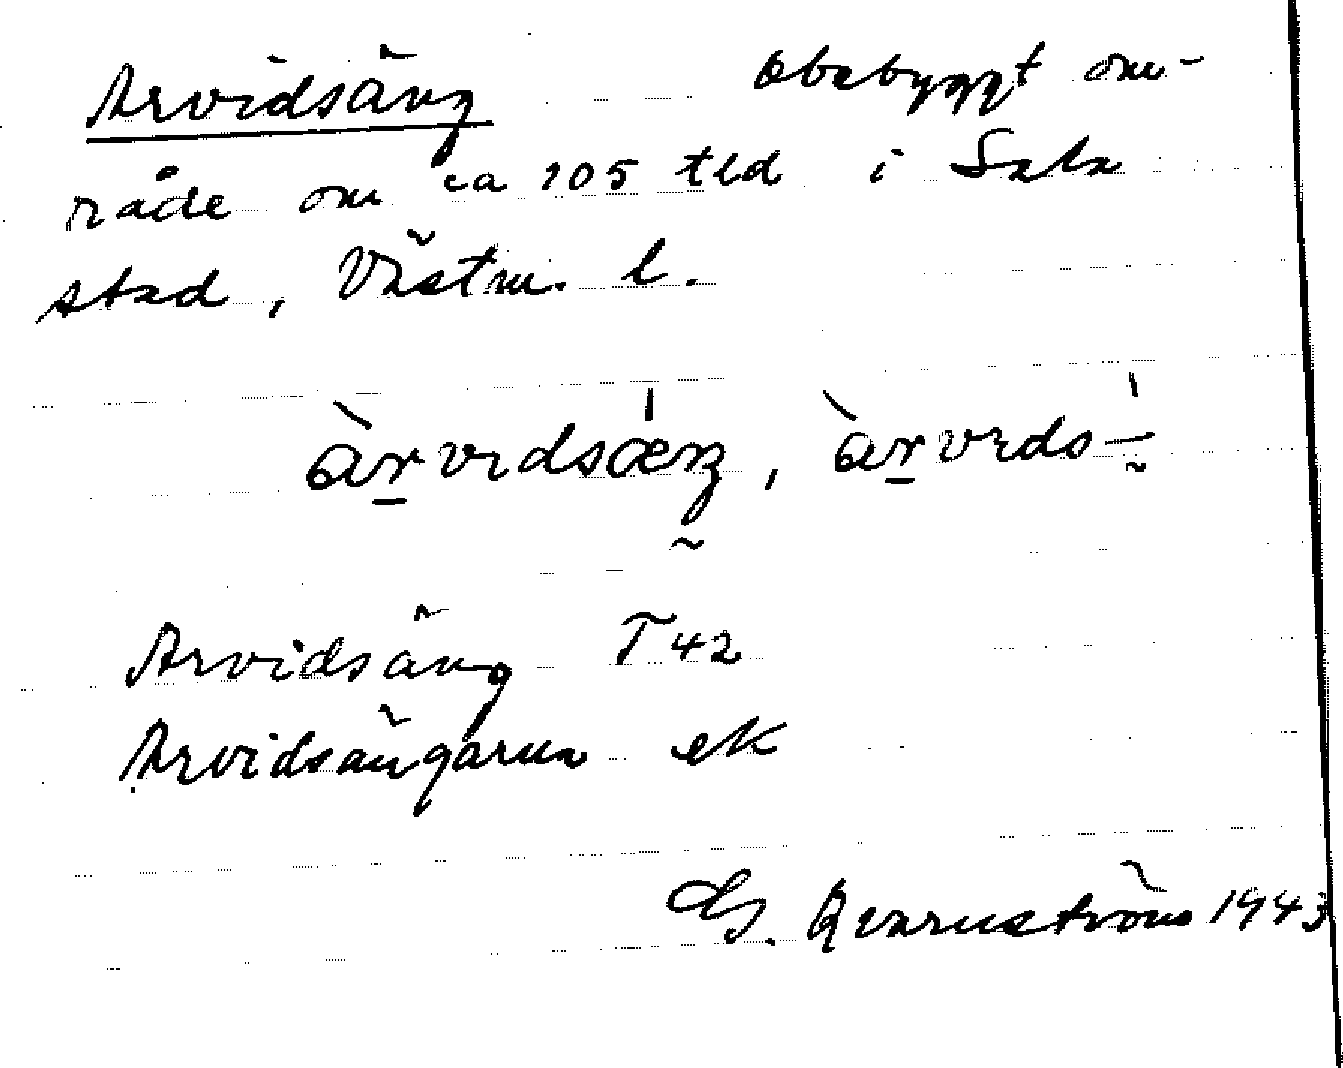 Arvidsäng Obebyggt om-
råde om ca 105 tld i Sala
stad, Västm. l.
àrvidsæŋ, àrvids-
Arvidsäng T 42
Arvidsängarna ek
G. Qvarnström 1943